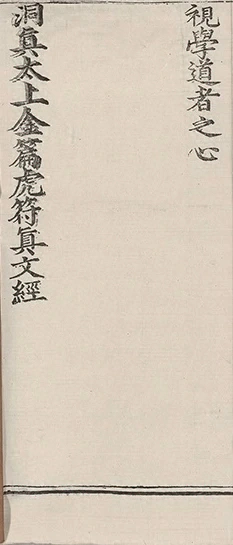 視學道者之心
洞眞太上金篇虎符眞文經